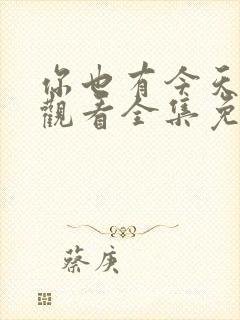 你也有今天
觀看全集免
蔡庚